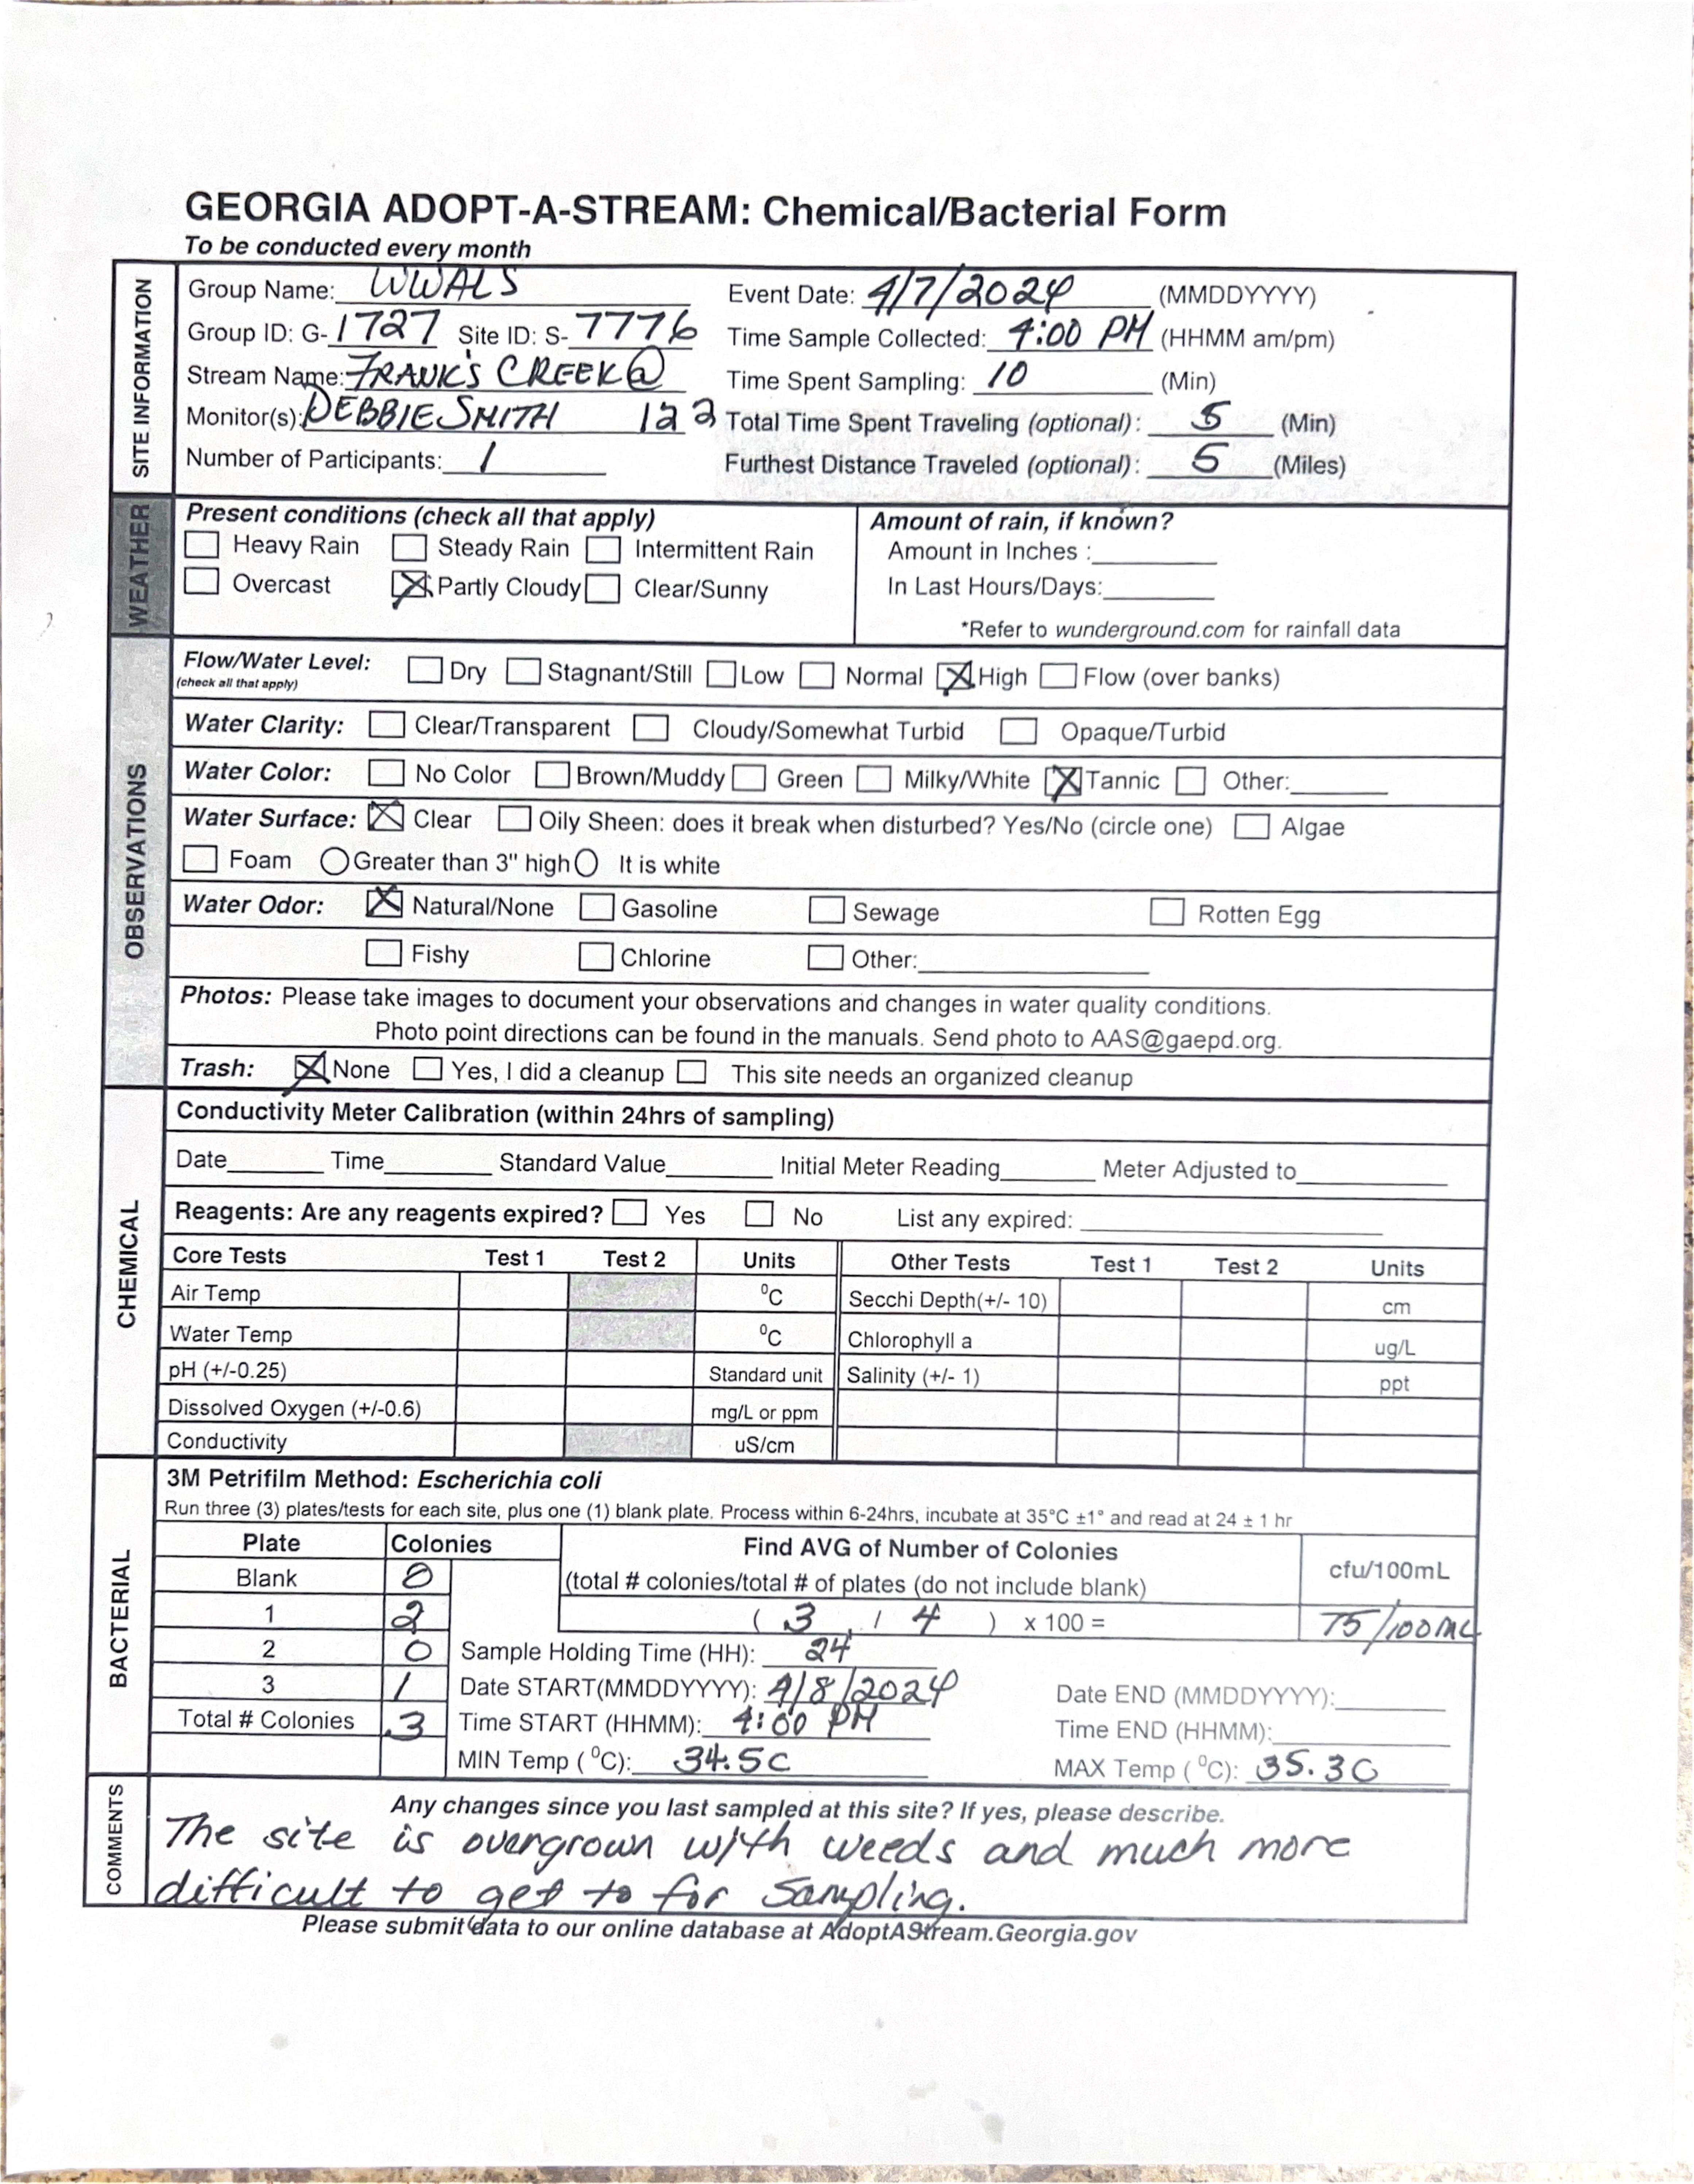 GEORGIA ADOPT-A-STREAM: Chemical/Bacterial Form
To be conducted every month
SITE INFORMATION
Group Name: WWALS Event Date: 4/7/2024 (MMDDYYYY)
Group ID: G-1727 Site ID: S-7776 Time Sample Collected: 4:00 PM (HHMM am/pm)
Stream Name: FRANK'S CREEK@ Time Spent Sampling: 10 (Min)
Monitor(s): DEBBIE SMITH 122 Total Time Spent Traveling (optional): 5 (Min)
Number of Participants: 1 Furthest Distance Traveled (optional): 5 (Miles)
WEATHER
Present conditions (check all that apply) Amount of rain, if known?
Heavy Rain Steady Rain Intermittent Rain Amount in Inches :
Overcast Partly Cloudy Clear/Sunny In Last Hours/Days:
*Refer to wunderground.com for rainfall data
OBSERVATIONS
Flow/Water Level: Dry Stagnant/Still Low Normal High Flow (over banks)
(check all that apply)
Water Clarity: Clear/Transparent Cloudy/Somewhat Turbid Opaque/Turbid
Water Color: No Color Brown/Muddy Green Milky/White Tannic Other:
Water Surface: Clear Oily Sheen: does it break when disturbed? Yes/No (circle one) Algae
Foam Greater than 3" high It is white
Water Odor: Natural/None Gasoline Sewage Rotten Egg
Fishy Chlorine Other:
Photos: Please take images to document your observations and changes in water quality conditions.
Photo point directions can be found in the manuals. Send photo to AAS@gaepd.org.
Trash: None Yes, I did a cleanup This site needs an organized cleanup
CHEMICAL
Conductivity Meter Calibration (within 24hrs of sampling)
Date Time Standard Value Initial Meter Reading Meter Adjusted to
Reagents: Are any reagents expired? Yes No List any expired:
Core Tests Test 1 Test 2 Units Other Tests Test 1 Test 2 Units
Air Temp °C Secchi Depth(+/- 10) cm
Water Temp °C Chlorophyll a ug/L
pH (+/-0.25) Standard unit Salinity (+/- 1) ppt
Dissolved Oxygen (+/-0.6) mg/L or ppm
Conductivity uS/cm
BACTERIAL
3M Petrifilm Method: Escherichia coli
Run three (3) plates/tests for each site, plus one (1) blank plate. Process within 6-24hrs, incubate at 35°C ±1° and read at 24 ± 1 hr
Plate Colonies Find AVG of Number of Colonies cfu/100mL
Blank 0 (total # colonies/total # of plates (do not include blank)
1 2 ( 3 / 4 ) x 100 = 75/100 mL
2 0 Sample Holding Time (HH): 24
3 1 Date START(MMDDYYYY): 4/8/2024 Date END (MMDDYYYY):
Total # Colonies 3 Time START (HHMM): 4:00 PM Time END (HHMM):
MIN Temp (°C): 34.5C MAX Temp (°C): 35.3C
COMMENTS
Any changes since you last sampled at this site? If yes, please describe.
The site is overgrown with weeds and much more
difficult to get to for sampling.
Please submit data to our online database at AdoptAStream.Georgia.gov